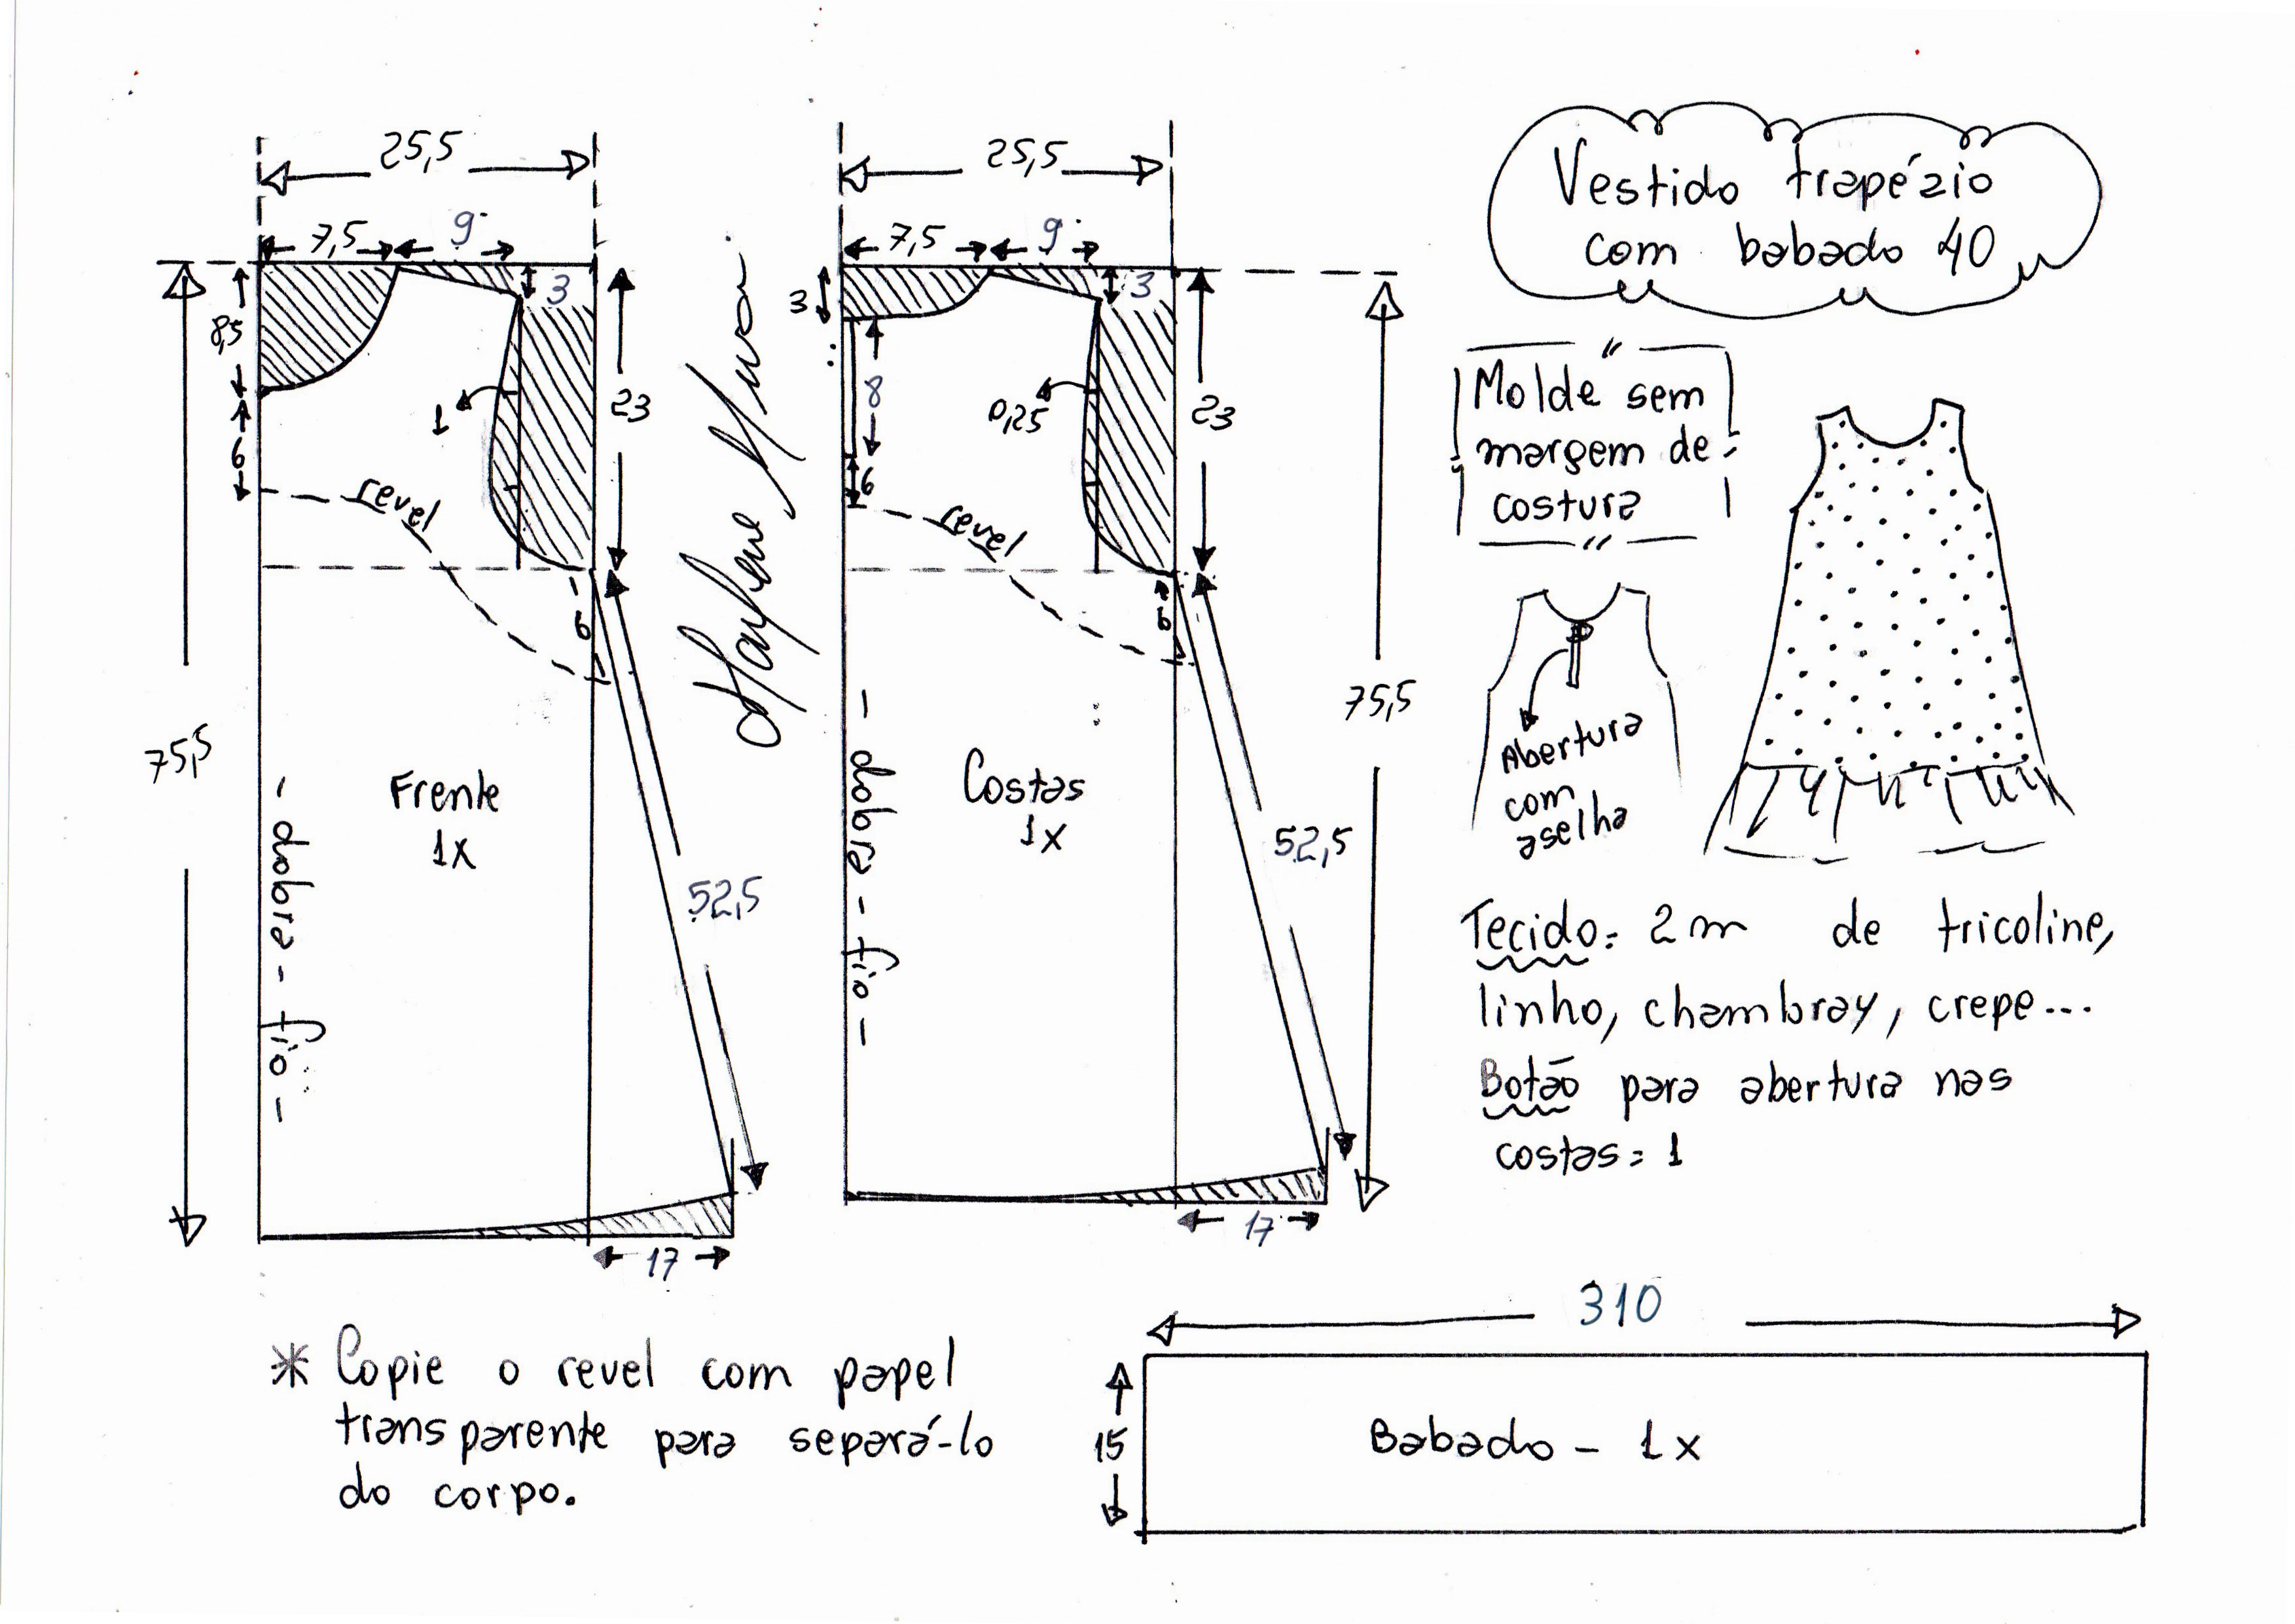 Vestido trapézio
com babado 40
Molde sem
margem de
costura
25,5
7,5
9
3
8,5
6
1
23
revel
6
75,5
Frente
1x
- dobra - fio -
52,5
17
25,5
7,5
9
3
3
8
6
0,25
23
revel
6
75,5
Costas
1x
- dobra - fio -
52,5
17
Abertura
com
aselha
Tecido: 2m de tricoline,
linho, chambray, crepe...
Botão para abertura nas
costas = 1
* Copie o revel com papel
transparente para separá-lo
do corpo.
310
15
Babado - 1x